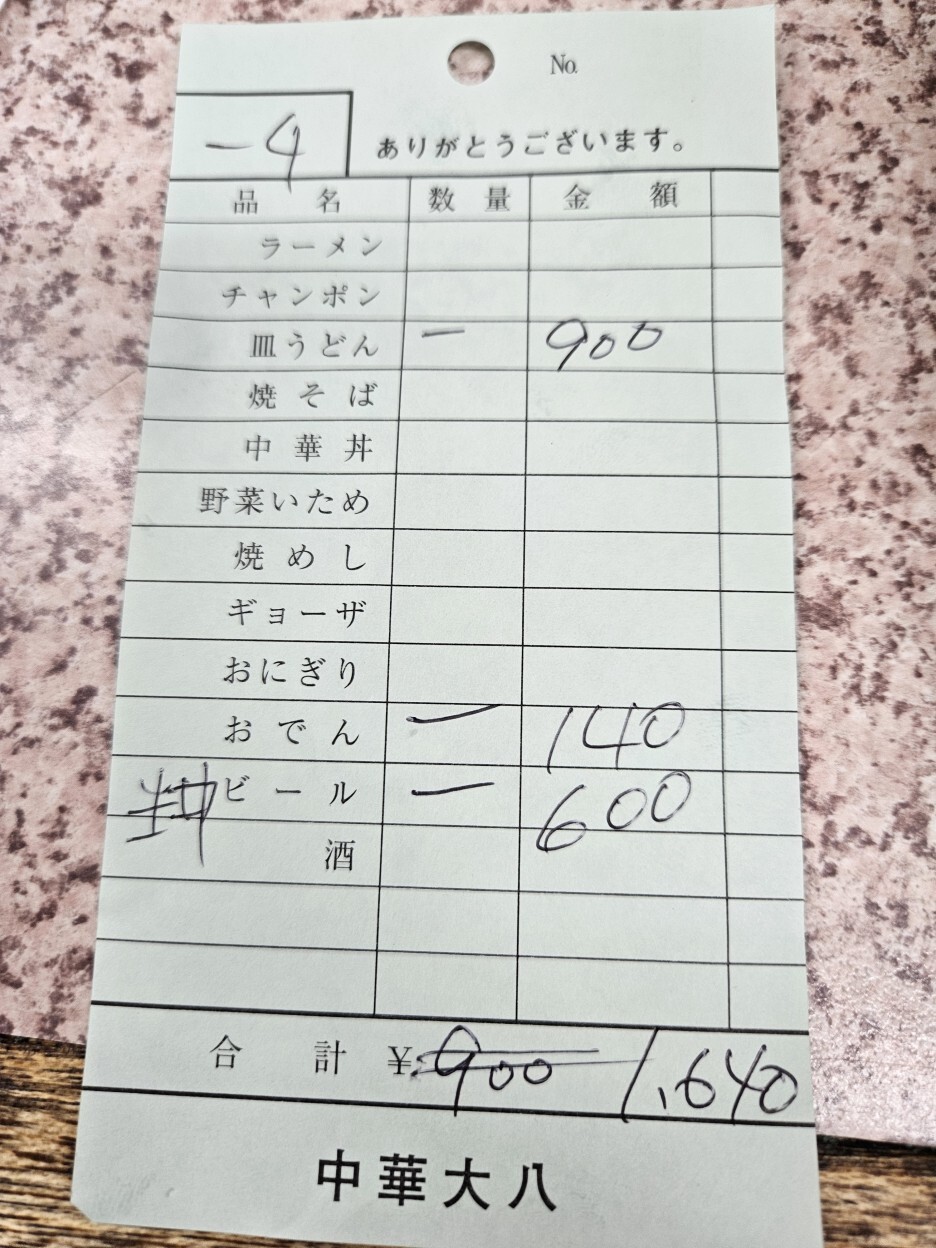 No.
一4
ありがとうございます。
品名 数量 金額
ラーメン
チャンポン
皿うどん 一 900
焼そば
中華丼
野菜いため
焼めし
ギョーザ
おにぎり
おでん 一 140
ビール 一 600
酒
合計 ¥ 900 1,640
中華大八